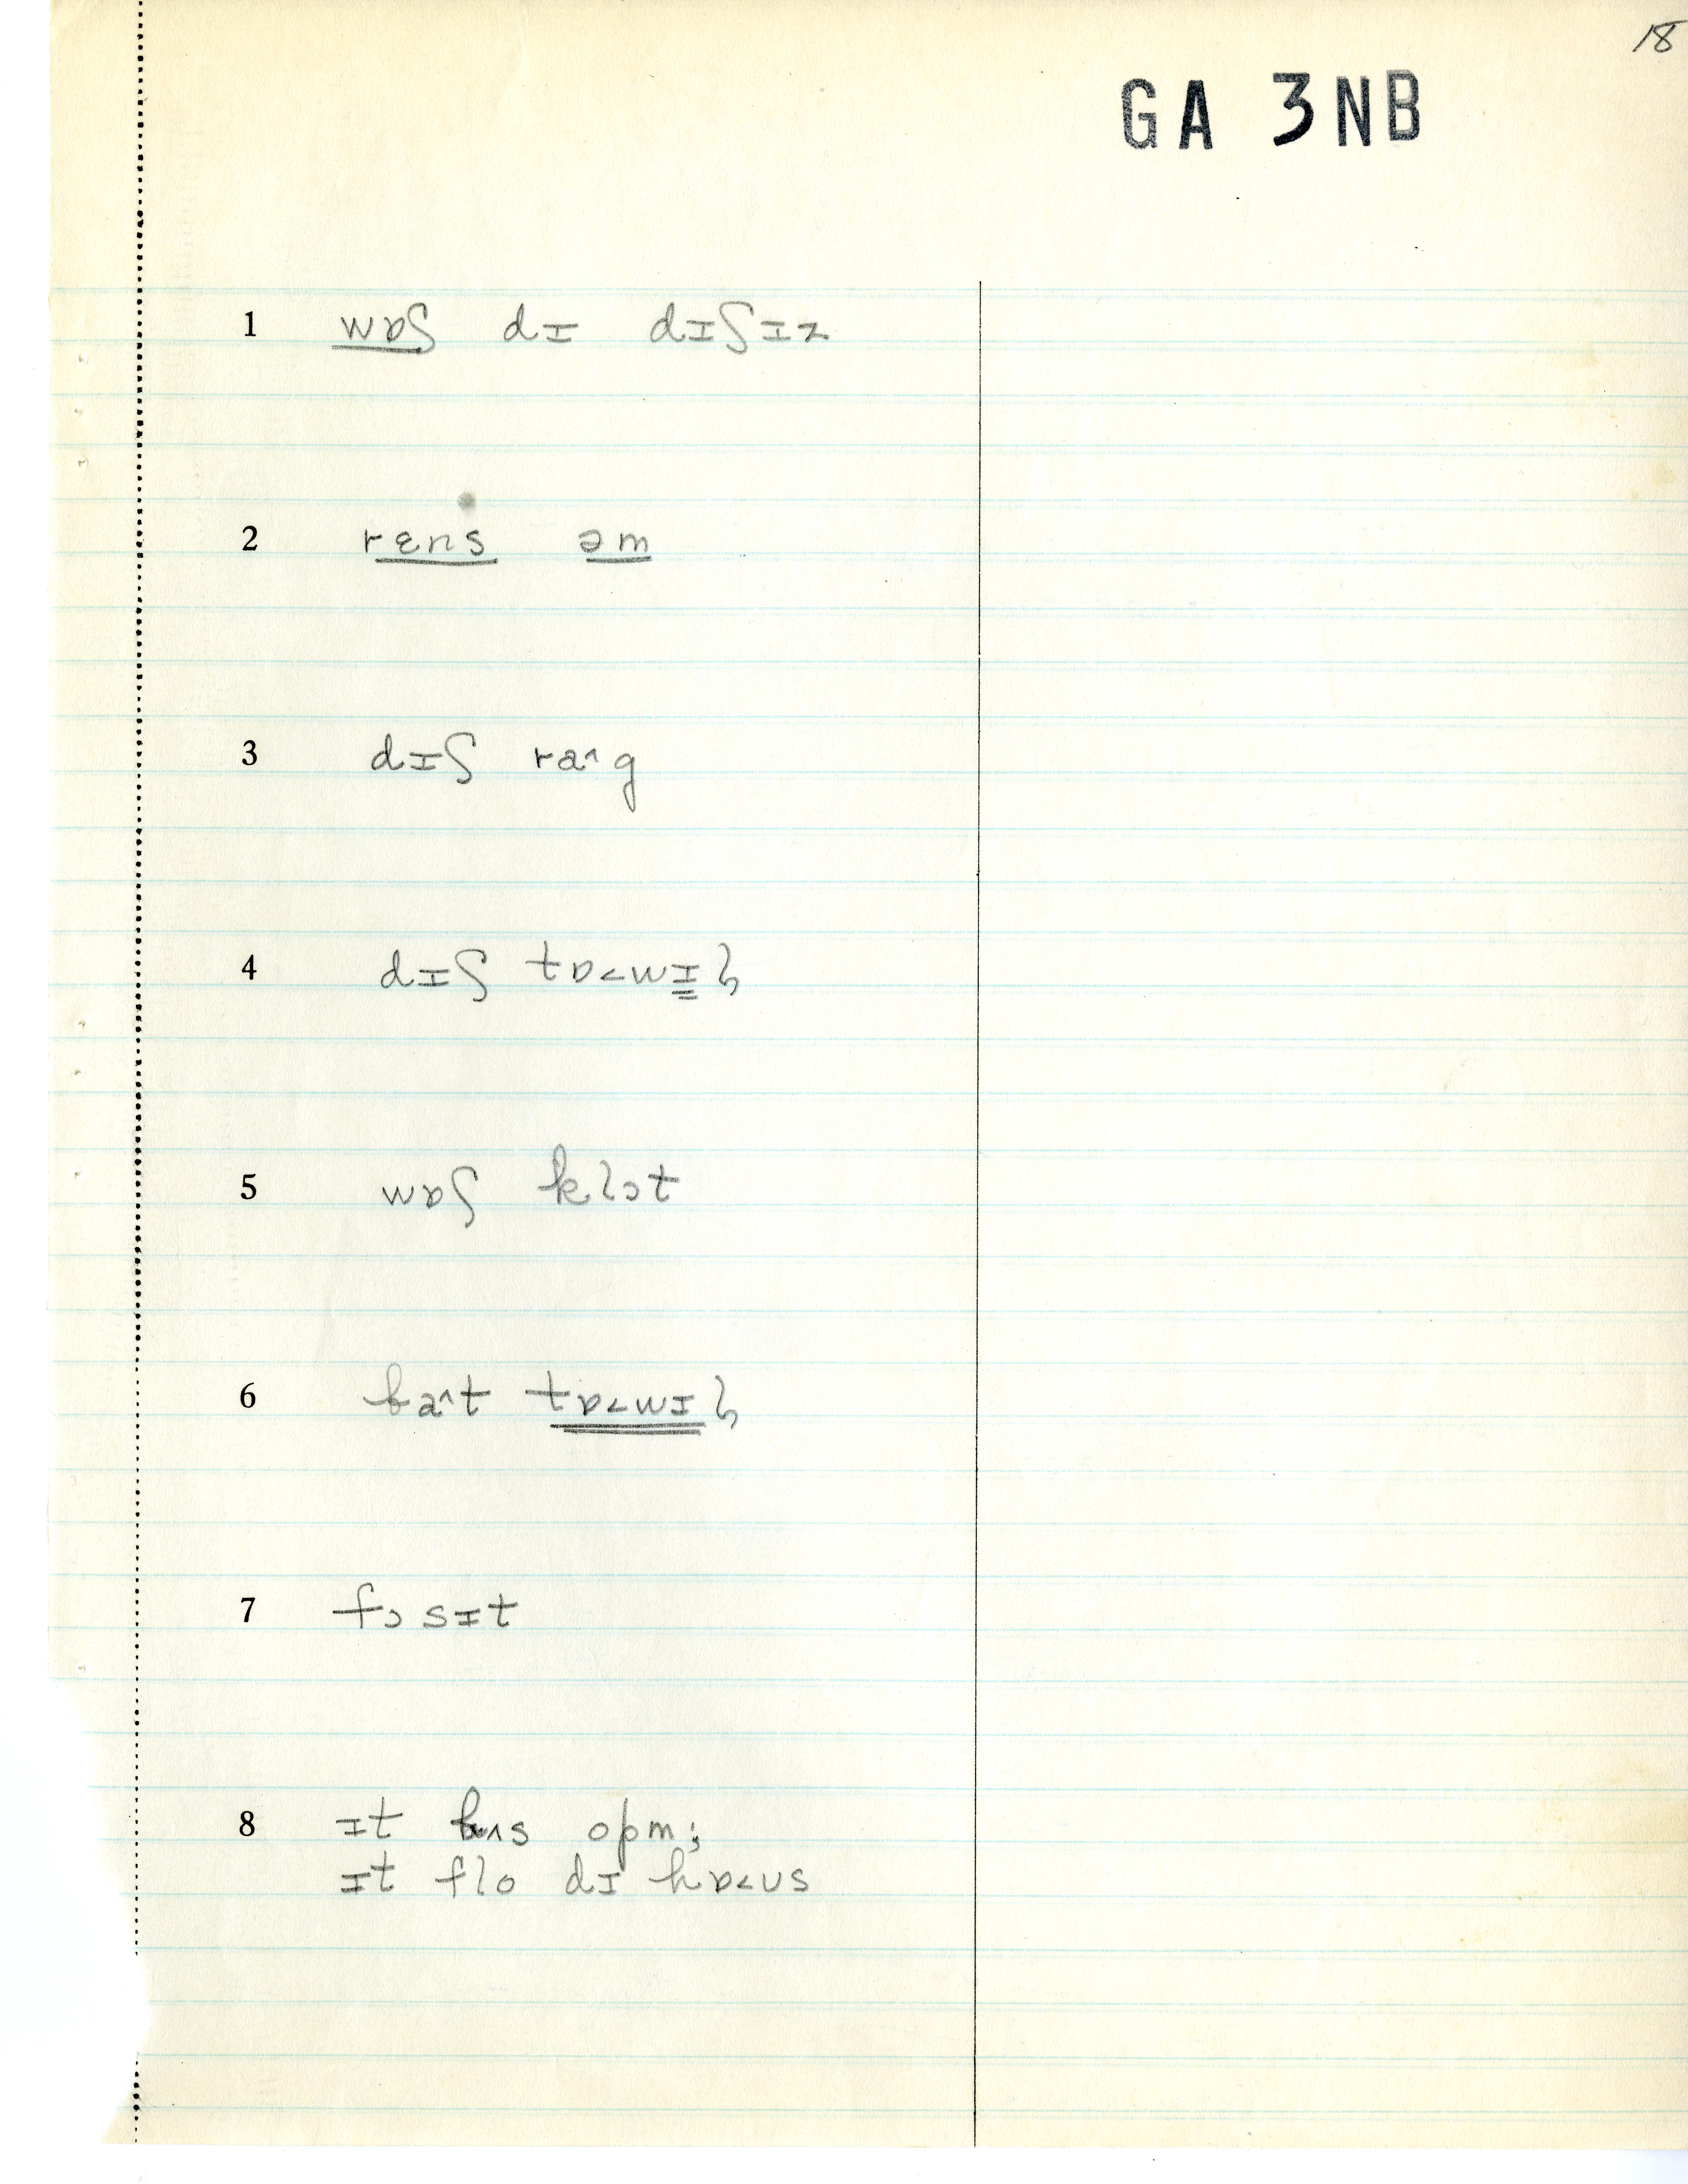 18
GA 3NB
1 wɒʃ dɪ dɪʃɪz
2 rɛns əm
3 dɪʃ raˆg
4 dɪʃ tɒ<wɪl̡
5 wɒʃ klɔt
6 baˆt tɒ<wɪl̡
7 fɔsɪt
8 ɪt bʌs opm;
ɪt flo dɪ hɒ<ʊs